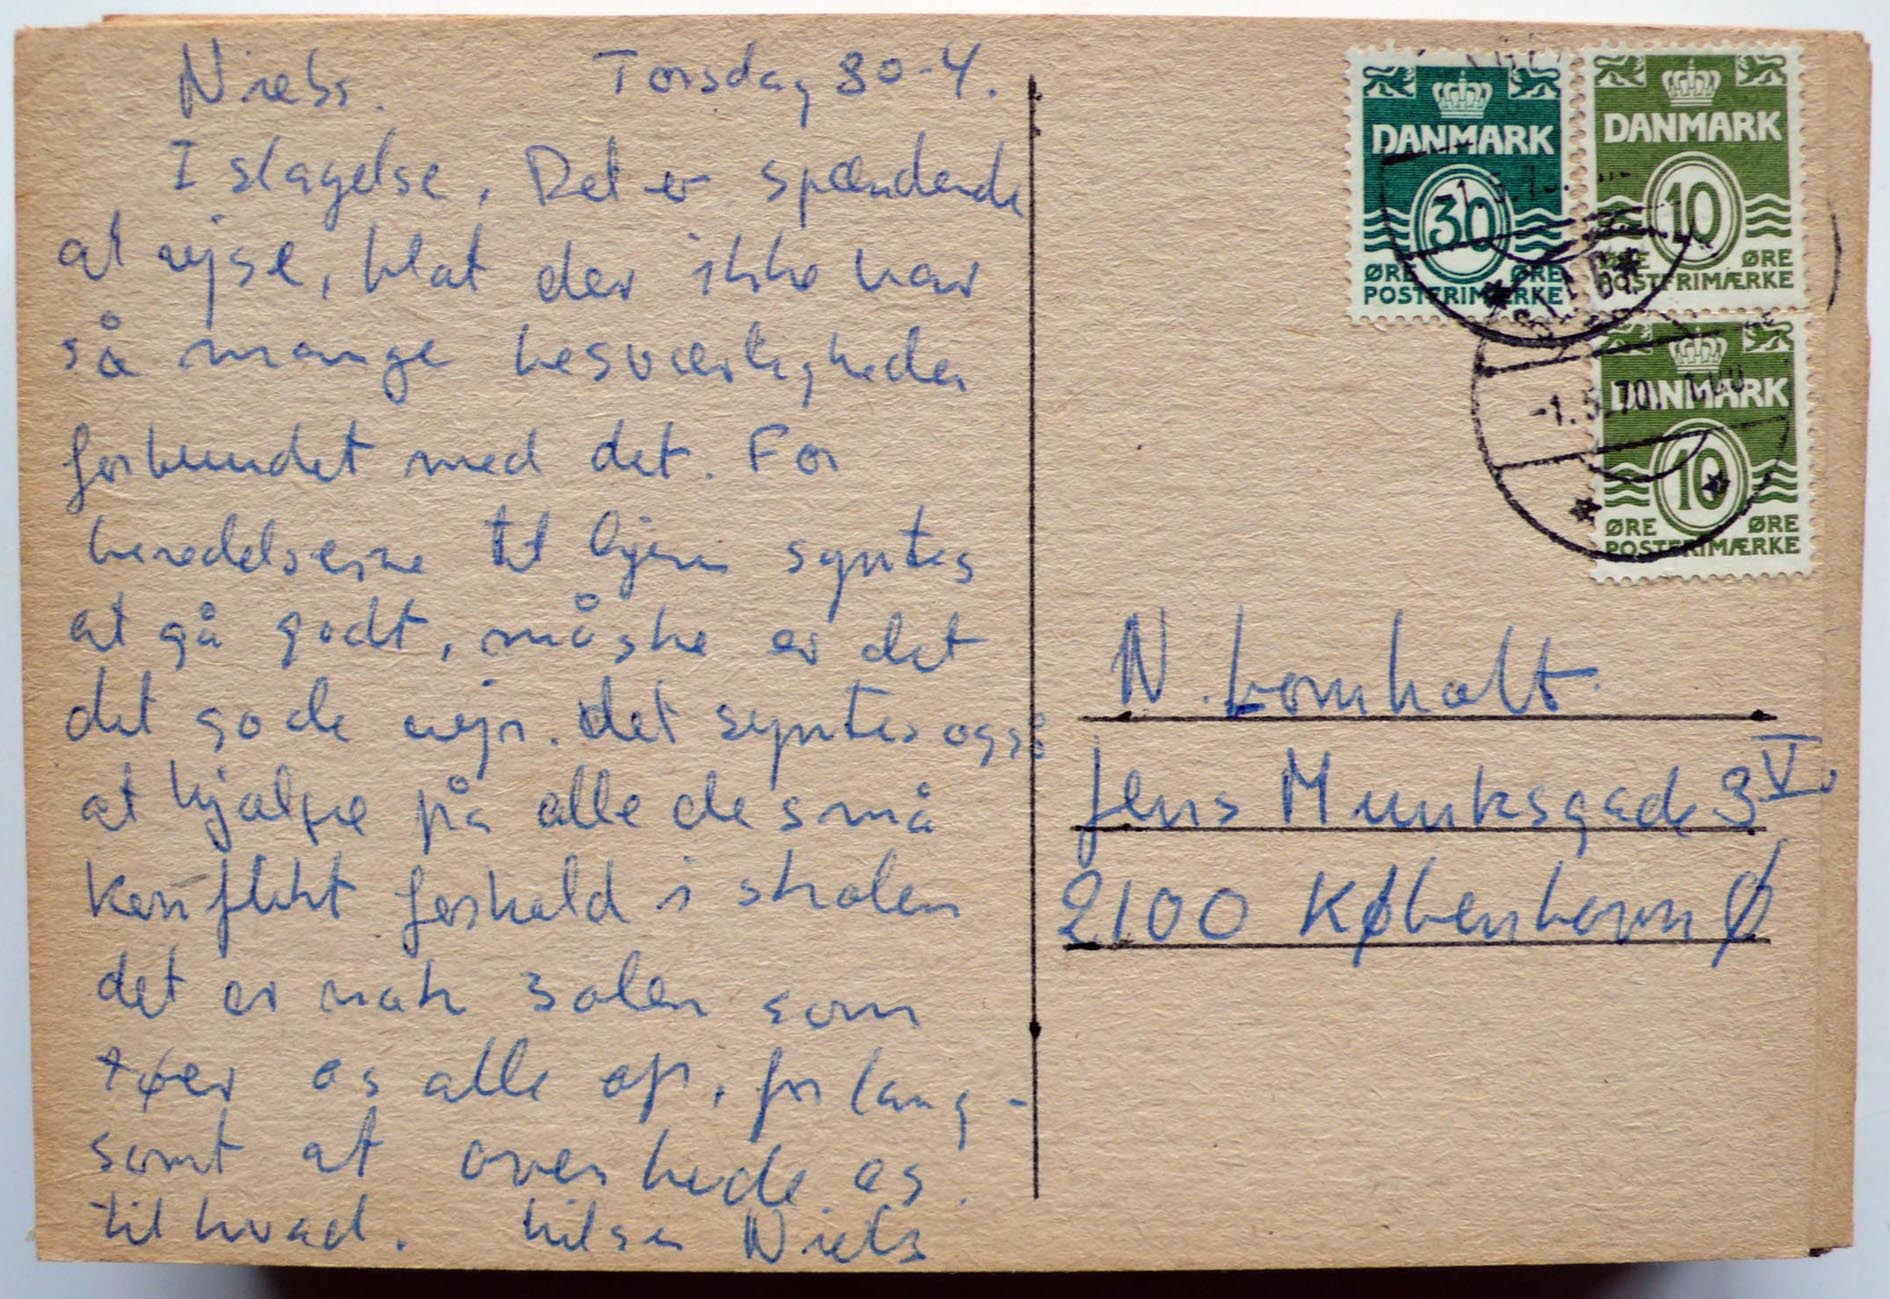 Niels. Torsdag 30-4.
I slagelse. Det er spændende
at rejse, blot der ikke var
så mange besværligheder
forbundet med det. For
beredelserne til ligen syntes
at gå godt, måske er det
det gode vejr. det syntes også
at hjælpe på alle de små
konflikt forhold i skolen
det er nok solen som
tøer os alle op, for lang-
somt at overhede os.
til hvad. hilsen Niels
DANMARK
30
ØRE ØRE
POSTFRIMÆRKE
DANMARK
10
ØRE
POSTFRIMÆRKE
DANMARK
10
ØRE ØRE
POSTFRIMÆRKE
-1.5.70.
N. Lomholt
Jens Munksgade 3 V.
2100 København Ø